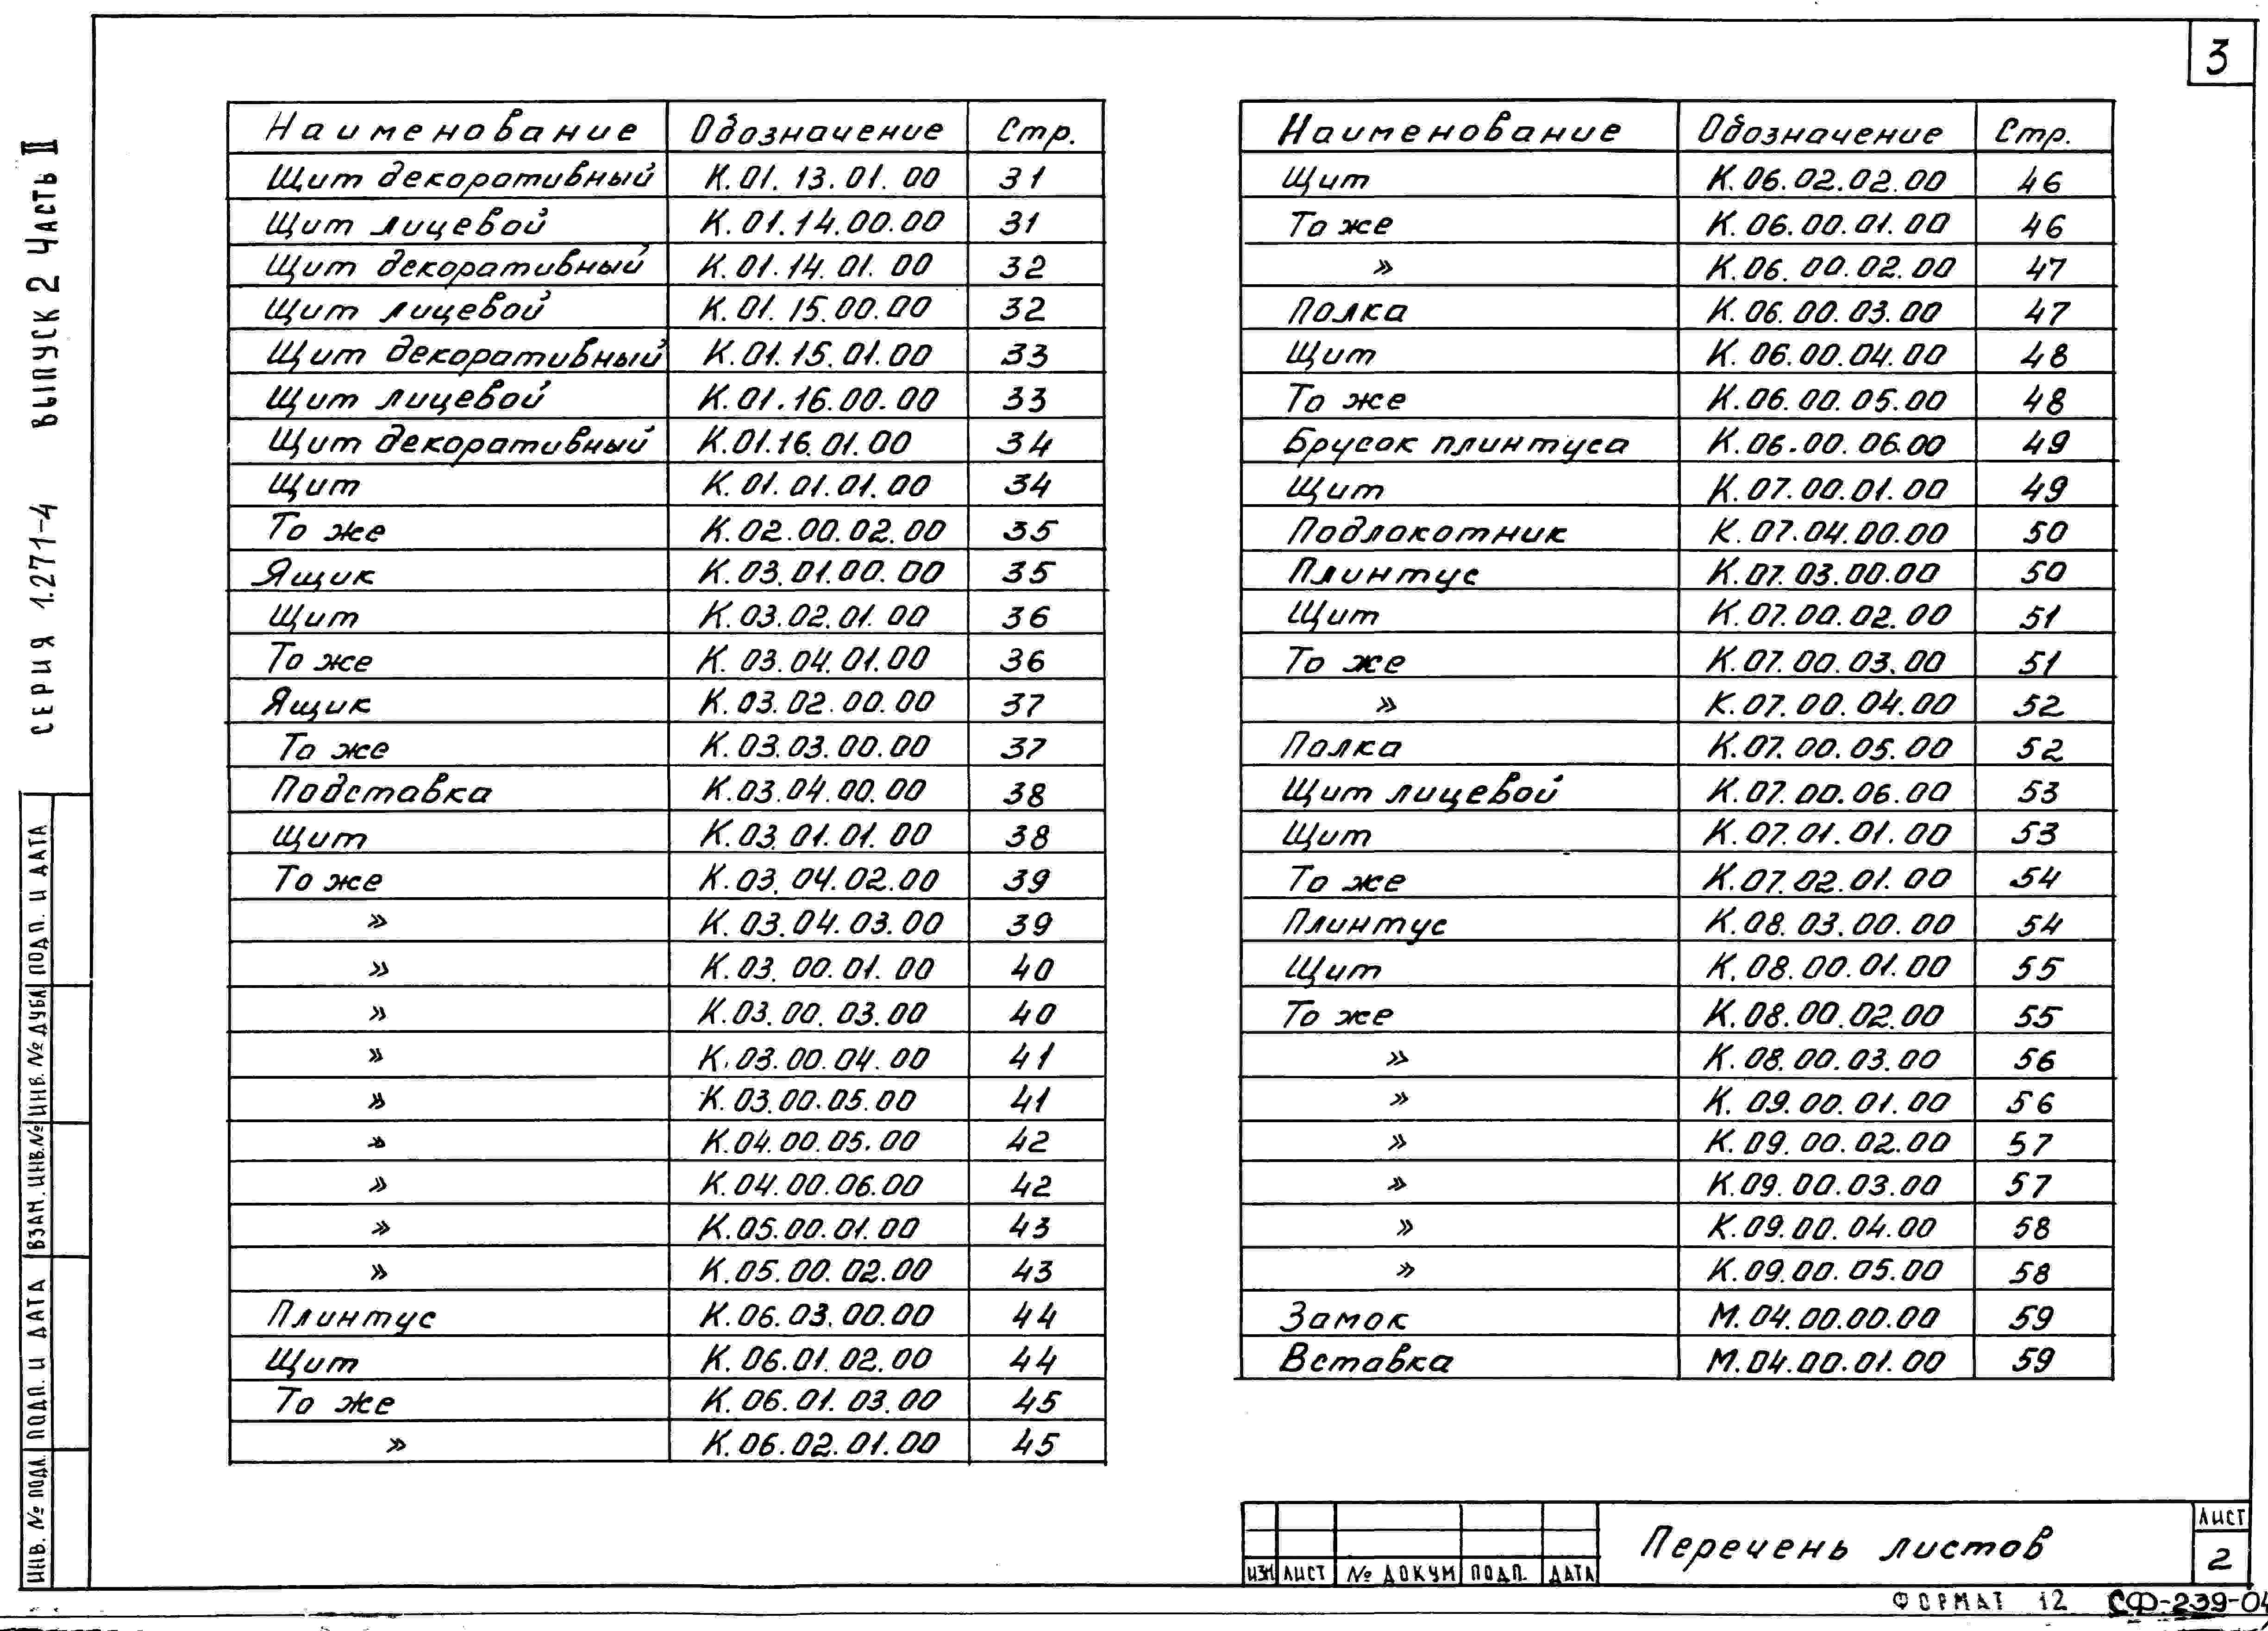 3
СЕРИЯ 1.271-4 ВЫПУСК 2 ЧАСТЬ II
Наименование Обозначение Стр.
Щит декоративный К.01.13.01.00 31
Щит лицевой К.01.14.00.00 31
Щит декоративный К.01.14.01.00 32
Щит лицевой К.01.15.00.00 32
Щит декоративный К.01.15.01.00 33
Щит лицевой К.01.16.00.00 33
Щит декоративный К.01.16.01.00 34
Щит К.01.01.01.00 34
То же К.02.00.02.00 35
Ящик К.03.01.00.00 35
Щит К.03.02.01.00 36
То же К.03.04.01.00 36
Ящик К.03.02.00.00 37
То же К.03.03.00.00 37
Подставка К.03.04.00.00 38
Щит К.03.01.01.00 38
То же К.03.04.02.00 39
» К.03.04.03.00 39
» К.03.00.01.00 40
» К.03.00.03.00 40
» К.03.00.04.00 41
» К.03.00.05.00 41
» К.04.00.05.00 42
» К.04.00.06.00 42
» К.05.00.01.00 43
» К.05.00.02.00 43
Плинтус К.06.03.00.00 44
Щит К.06.01.02.00 44
То же К.06.01.03.00 45
» К.06.02.01.00 45
Наименование Обозначение Стр.
Щит К.06.02.02.00 46
То же К.06.00.01.00 46
» К.06.00.02.00 47
Полка К.06.00.03.00 47
Щит К.06.00.04.00 48
То же К.06.00.05.00 48
Брусок плинтуса К.06.00.06.00 49
Щит К.07.00.01.00 49
Подлокотник К.07.04.00.00 50
Плинтус К.07.03.00.00 50
Щит К.07.00.02.00 51
То же К.07.00.03.00 51
» К.07.00.04.00 52
Полка К.07.00.05.00 52
Щит лицевой К.07.00.06.00 53
Щит К.07.01.01.00 53
То же К.07.02.01.00 54
Плинтус К.08.03.00.00 54
Щит К.08.00.01.00 55
То же К.08.00.02.00 55
» К.08.00.03.00 56
» К.09.00.01.00 56
» К.09.00.02.00 57
» К.09.00.03.00 57
» К.09.00.04.00 58
» К.09.00.05.00 58
Замок М.04.00.00.00 59
Вставка М.04.00.01.00 59
ИНВ. № ПОДЛ. ПОДП. И ДАТА ВЗАМ. ИНВ. № ИНВ. № ДУБЛ ПОДП. И ДАТА
ИЗМ ЛИСТ № ДОКУМ ПОДП. ДАТА
Перечень листов
ЛИСТ
2
ФОРМАТ 12 СФ-239-04